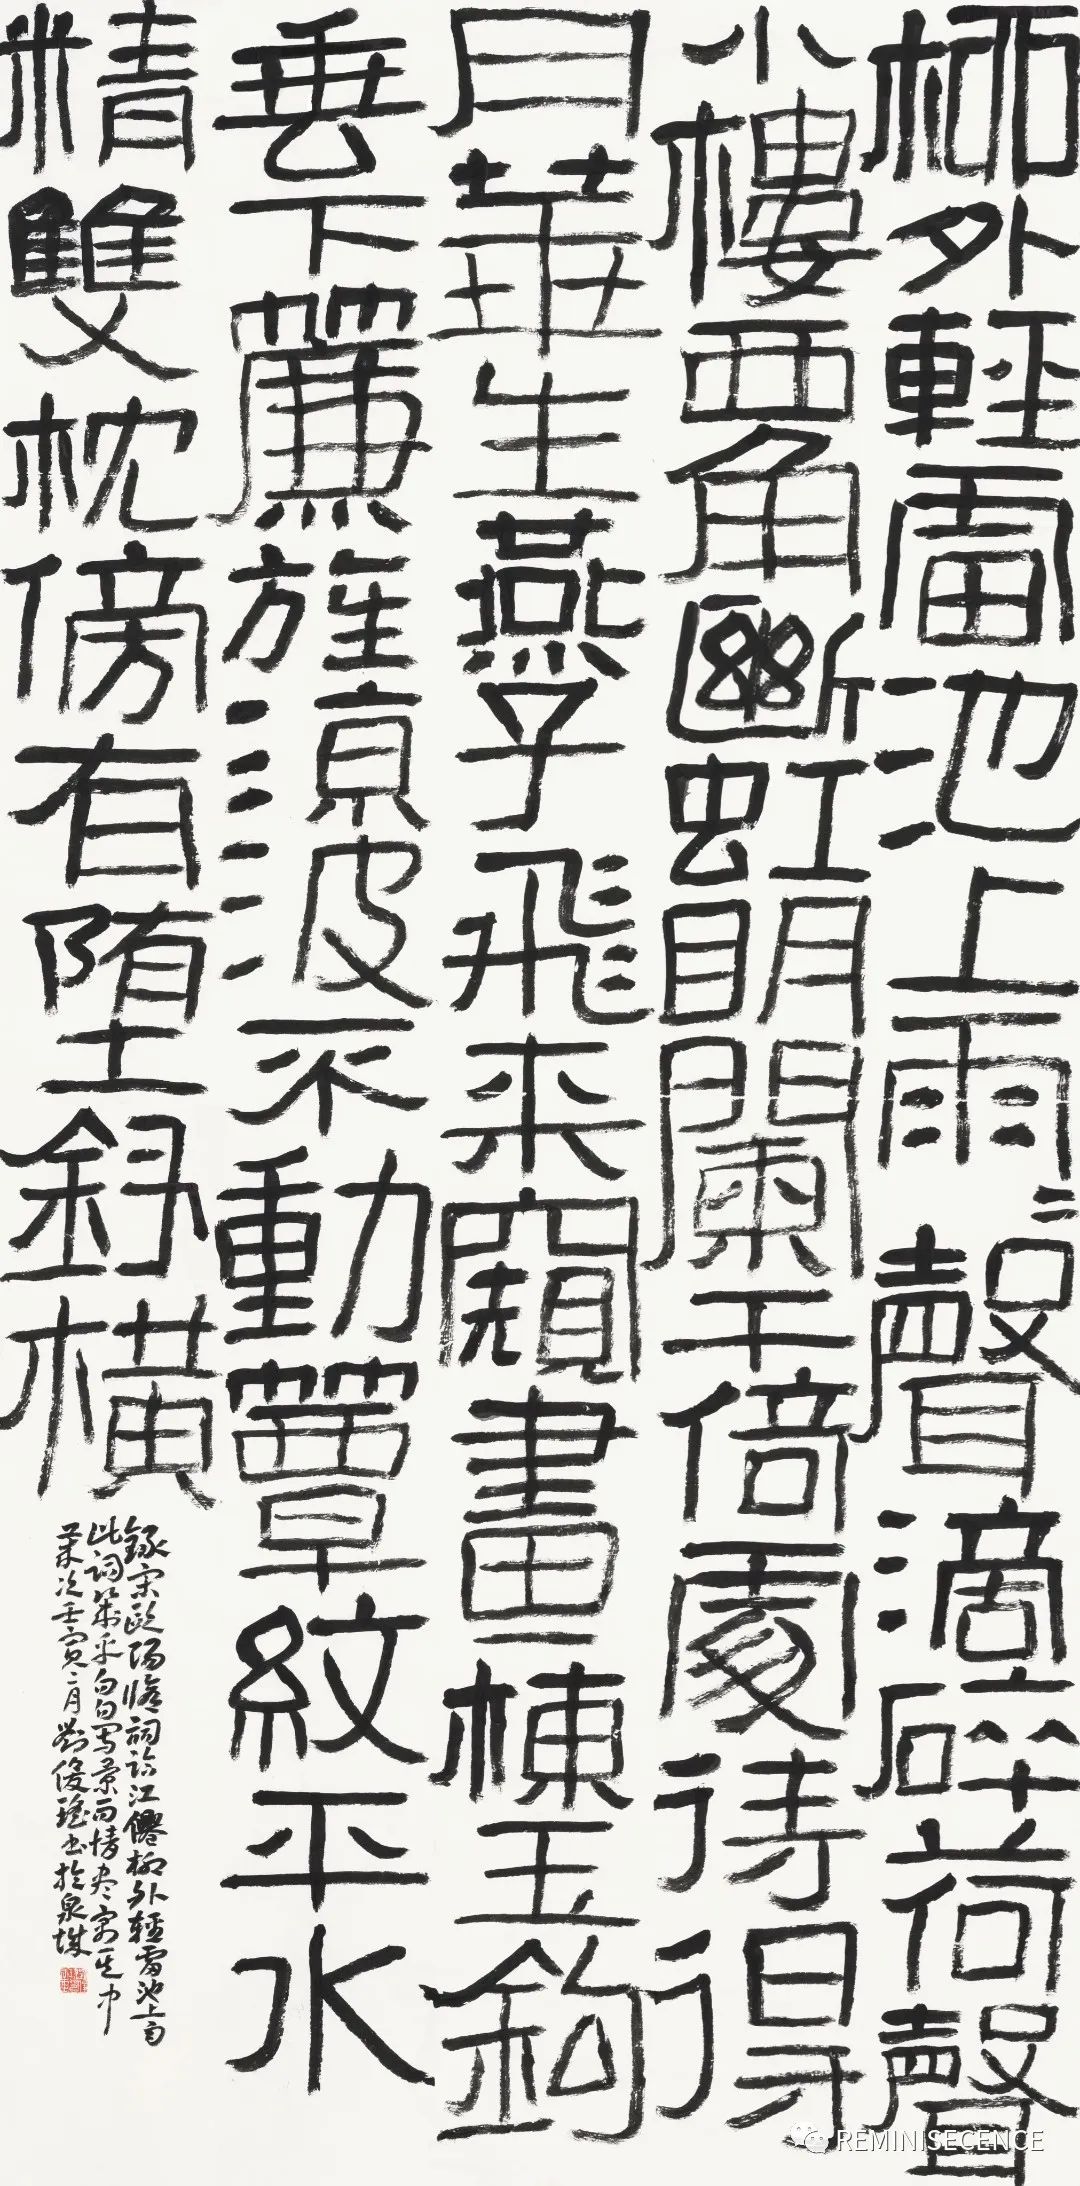 柳外輕雷池上雨〻聲滴碎荷聲
小樓西角斷虹明闌干倚處待得
月華生燕子飛來窺畫棟玉鉤
垂下簾旌涼波不動簟紋平水
精雙枕傍有墮釵橫
錄宋歐陽脩詞臨江僊柳外輕雷池上雨
此詞幾乎句句寫景而情盡寓其中
次壬寅二月劉俊書於泉城
REMINISECENCE